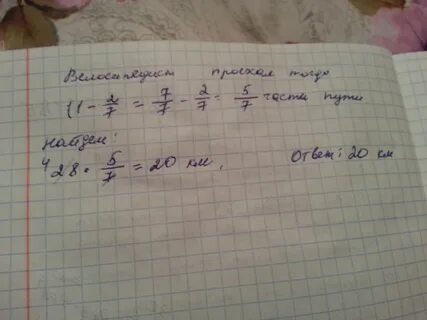 Велосипедист проехал тогда
(1 - 2/7 = 7/7 - 2/7 = 5/7 части пути
найдем:
4 28 · 5/7 = 20 км. Ответ: 20 км